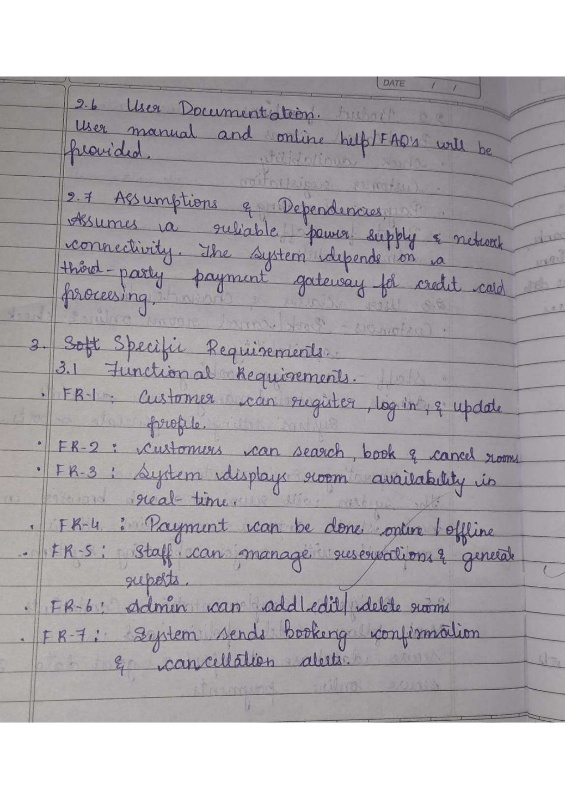 DATE / /
2.6 User Documentation.
User manual and online help/FAQ's will be
provided.
2.7 Assumptions & Dependencies
Assumes a reliable power supply & network
connectivity. The system depends on a
third-party payment gateway for credit card
processing.
3. Soft Specific Requirements.
3.1 Functional Requirements.
• FR-1: Customer can register, log in, & update
profile.
• FR-2: Customers can search, book & cancel rooms
• FR-3: System displays room availability in
real-time.
• FR-4: Payment can be done online / offline
• FR-5: Staff can manage reservations & generate
reports.
• FR-6: Admin can add/edit/delete rooms
• FR-7: System sends booking confirmation
& cancellation alerts.